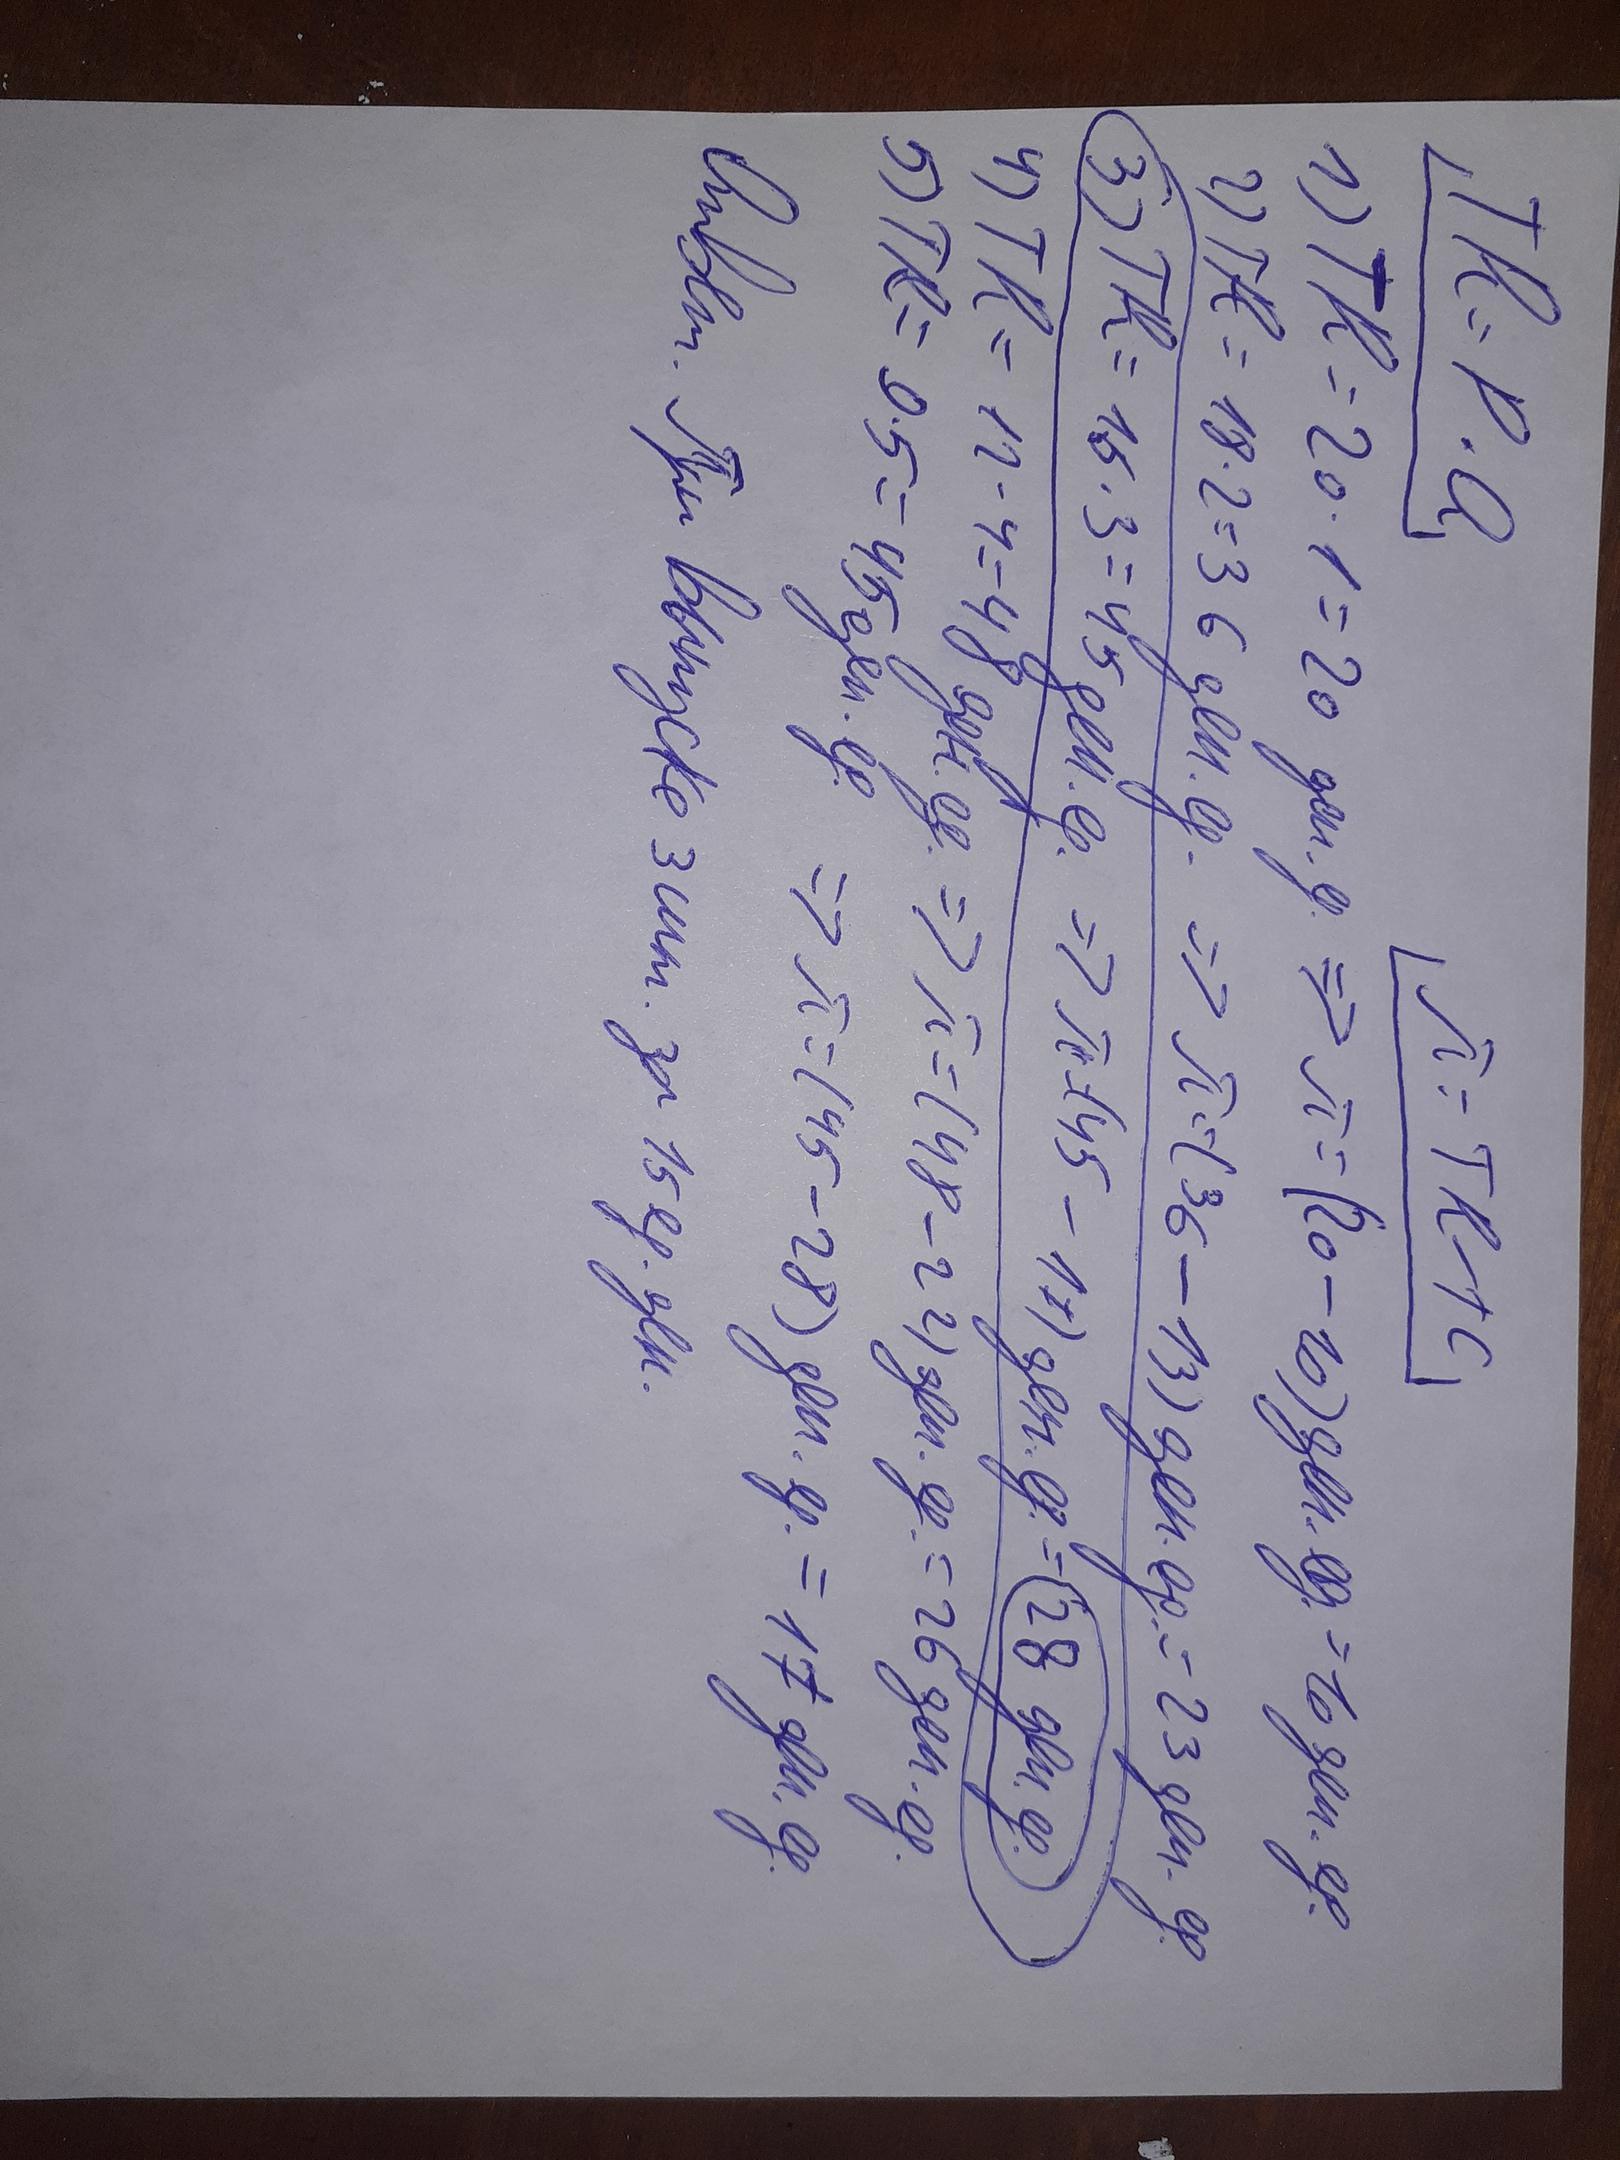 TR=P·Q
π=TR-TC
1) TR=20·1=20 ден.ед. => π=(20-10)ден.ед.=10 ден.ед.
2) TR=18·2=36 ден.ед. => π=(36-13)ден.ед.=23 ден.ед.
3) TR=15·3=45 ден.ед. => π=(45-17)ден.ед.=28 ден.ед.
4) TR=12·4=48 ден.ед. => π=(48-22)ден.ед.=26 ден.ед.
5) TR=9·5=45 ден.ед. => π=(45-28)ден.ед.=17 ден.ед.
Ответ. При выпуске 3 шт. за 15 ед.ден.